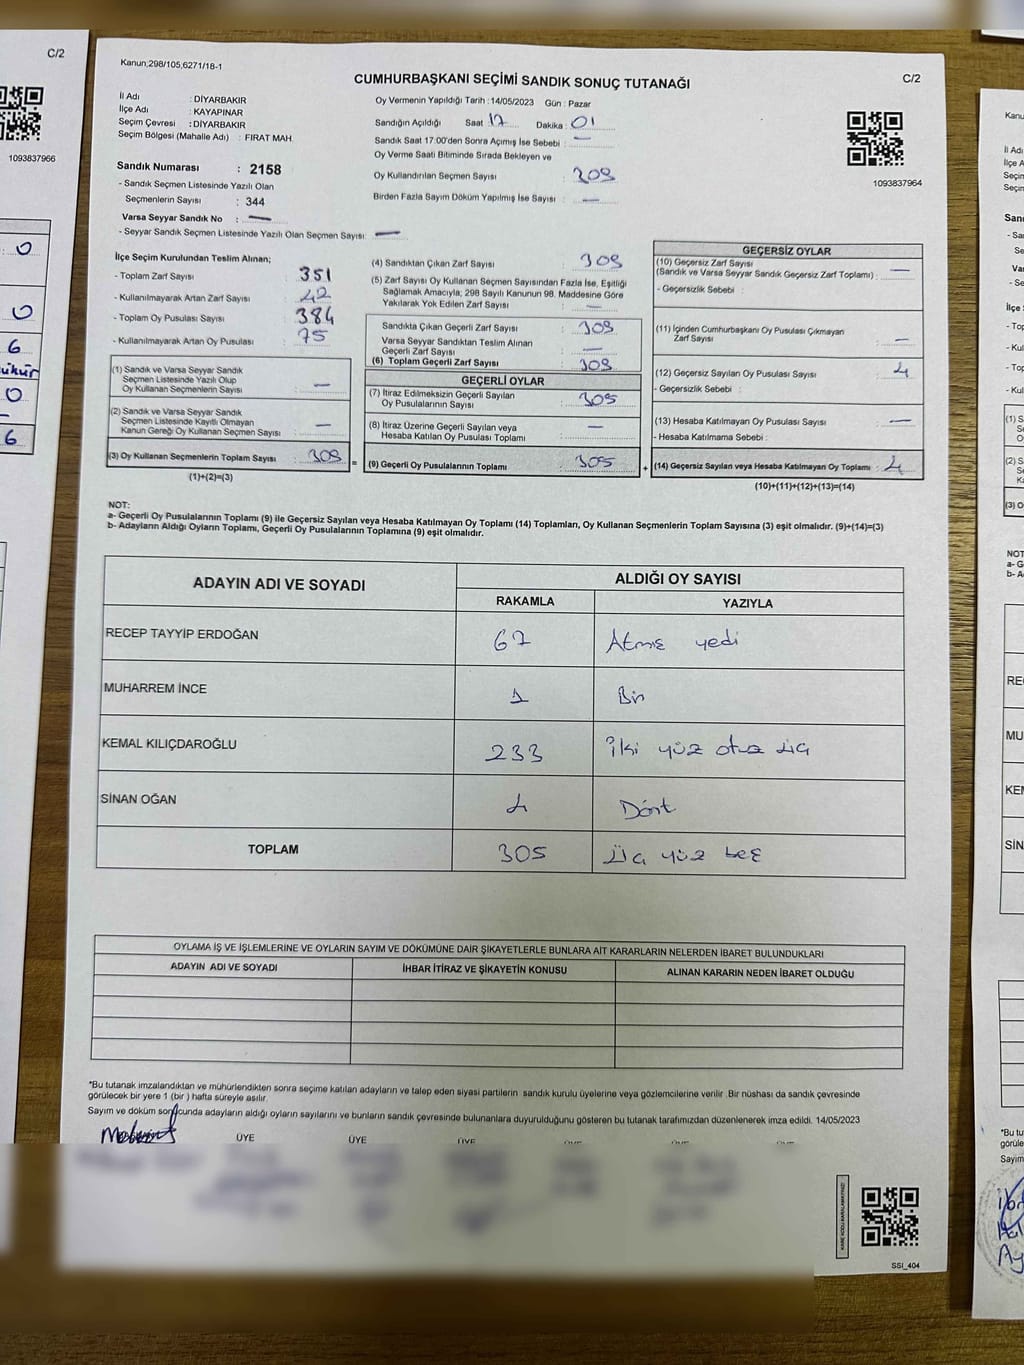 C/2
1093837966
0
0
6
0
6
Kanun;298/105,6271/18-1
C/2
CUMHURBAŞKANI SEÇİMİ SANDIK SONUÇ TUTANAĞI
1093837964
İl Adı : DİYARBAKIR
İlçe Adı : KAYAPINAR
Seçim Çevresi : DİYARBAKIR
Seçim Bölgesi (Mahalle Adı) : FIRAT MAH
Sandık Numarası : 2158
- Sandık Seçmen Listesinde Yazılı Olan
Seçmenlerin Sayısı : 344
Varsa Seyyar Sandık No : —
- Seyyar Sandık Seçmen Listesinde Yazılı Olan Seçmen Sayısı: —
Oy Vermenin Yapıldığı Tarih : 14/05/2023 Gün : Pazar
Sandığın Açıldığı Saat 17 Dakika : 01
Sandık Saat 17:00'den Sonra Açımış İse Sebebi : —
Oy Verme Saati Bitiminde Sırada Bekleyen ve
Oy Kullandırılan Seçmen Sayısı : 309
Birden Fazla Sayım Döküm Yapılmış İse Sayısı : —
İlçe Seçim Kurulundan Teslim Alınan;
- Toplam Zarf Sayısı : 351
- Kullanılmayarak Artan Zarf Sayısı : 42
- Toplam Oy Pusulası Sayısı : 384
- Kullanılmayarak Artan Oy Pusulası : 75
(1) Sandık ve Varsa Seyyar Sandık
Seçmen Listesinde Yazılı Olup
Oy Kullanan Seçmenlerin Sayısı : —
(2) Sandık ve Varsa Seyyar Sandık
Seçmen Listesinde Kayıtlı Olmayan
Kanun Gereği Oy Kullanan Seçmen Sayısı : —
(3) Oy Kullanan Seçmenlerin Toplam Sayısı : 309
(1)+(2)=(3)
=
(4) Sandıktan Çıkan Zarf Sayısı : 309
(5) Zarf Sayısı Oy Kullanan Seçmen Sayısından Fazla İse, Eşitliği
Sağlamak Amacıyla; 298 Sayılı Kanunun 98. Maddesine Göre
Yakılarak Yok Edilen Zarf Sayısı : —
Sandıkta Çıkan Geçerli Zarf Sayısı : 309
Varsa Seyyar Sandıktan Teslim Alınan
Geçerli Zarf Sayısı : —
(6) Toplam Geçerli Zarf Sayısı : 309
GEÇERLİ OYLAR
(7) İtiraz Edilmeksizin Geçerli Sayılan
Oy Pusulalarının Sayısı : 305
(8) İtiraz Üzerine Geçerli Sayılan veya
Hesaba Katılan Oy Pusulası Toplamı : —
(9) Geçerli Oy Pusulalarının Toplamı : 305
+
GEÇERSİZ OYLAR
(10) Geçersiz Zarf Sayısı
(Sandık ve Varsa Seyyar Sandık Geçersiz Zarf Toplamı) : —
- Geçersizlik Sebebi :
(11) İçinden Cumhurbaşkanı Oy Pusulası Çıkmayan
Zarf Sayısı : —
(12) Geçersiz Sayılan Oy Pusulası Sayısı : 4
- Geçersizlik Sebebi :
(13) Hesaba Katılmayan Oy Pusulası Sayısı : —
- Hesaba Katılmama Sebebi :
(14) Geçersiz Sayılan veya Hesaba Katılmayan Oy Toplamı : 4
(10)+(11)+(12)+(13)=(14)
NOT:
a- Geçerli Oy Pusulalarının Toplamı (9) ile Geçersiz Sayılan veya Hesaba Katılmayan Oy Toplamı (14) Toplamları, Oy Kullanan Seçmenlerin Toplam Sayısına (3) eşit olmalıdır. (9)+(14)=(3)
b- Adayların Aldığı Oyların Toplamı, Geçerli Oy Pusulalarının Toplamına (9) eşit olmalıdır.
ADAYIN ADI VE SOYADI ALDIĞI OY SAYISI
RAKAMLA YAZIYLA
RECEP TAYYİP ERDOĞAN 67 Atmış yedi
MUHARREM İNCE 1 Bir
KEMAL KILIÇDAROĞLU 233 İki yüz otuz üç
SİNAN OĞAN 4 Dört
TOPLAM 305 Üç yüz beş
OYLAMA İŞ VE İŞLEMLERİNE VE OYLARIN SAYIM VE DÖKÜMÜNE DAİR ŞİKAYETLERLE BUNLARA AİT KARARLARIN NELERDEN İBARET BULUNDUKLARI
ADAYIN ADI VE SOYADI İHBAR İTİRAZ VE ŞİKAYETİN KONUSU ALINAN KARARIN NEDEN İBARET OLDUĞU
*Bu tutanak imzalandıktan ve mühürlendikten sonra seçime katılan adayların ve talep eden siyasi partilerin sandık kurulu üyelerine veya gözlemcilerine verilir .Bir nüshası da sandık çevresinde
görülecek bir yere 1 (bir ) hafta süreyle asılır.
Sayım ve döküm sonucunda adayların aldığı oyların sayılarını ve bunların sandık çevresinde bulunanlara duyurulduğunu gösteren bu tutanak tarafımızdan düzenlenerek imza edildi. 14/05/2023
ÜYE ÜYE ÜYE
SSI_404